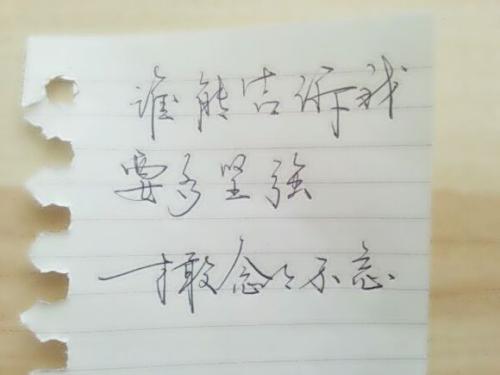 谁能告诉我
要多坚强
才敢念念不忘